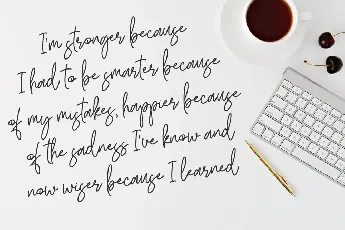 I'm stronger because
I had to be smarter because
of my mistakes, happier because
of the sadness I've know and
now wiser because I learned